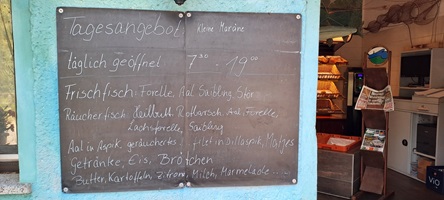 Tagesangebot Kleine Maräne
täglich geöffnet 7³⁰ - 19⁰⁰
Frischfisch: Forelle, Aal, Saibling, Stör
Räucherfisch: Heilbutt, Rotbarsch, Aal, Forelle,
Lachsforelle, Saibling
Aal in Aspik, geräuchertes, filet in Dillaspik, Matjes
Getränke, Eis, Brötchen
Butter, Kartoffeln, Zitrone, Milch, Marmelade ...